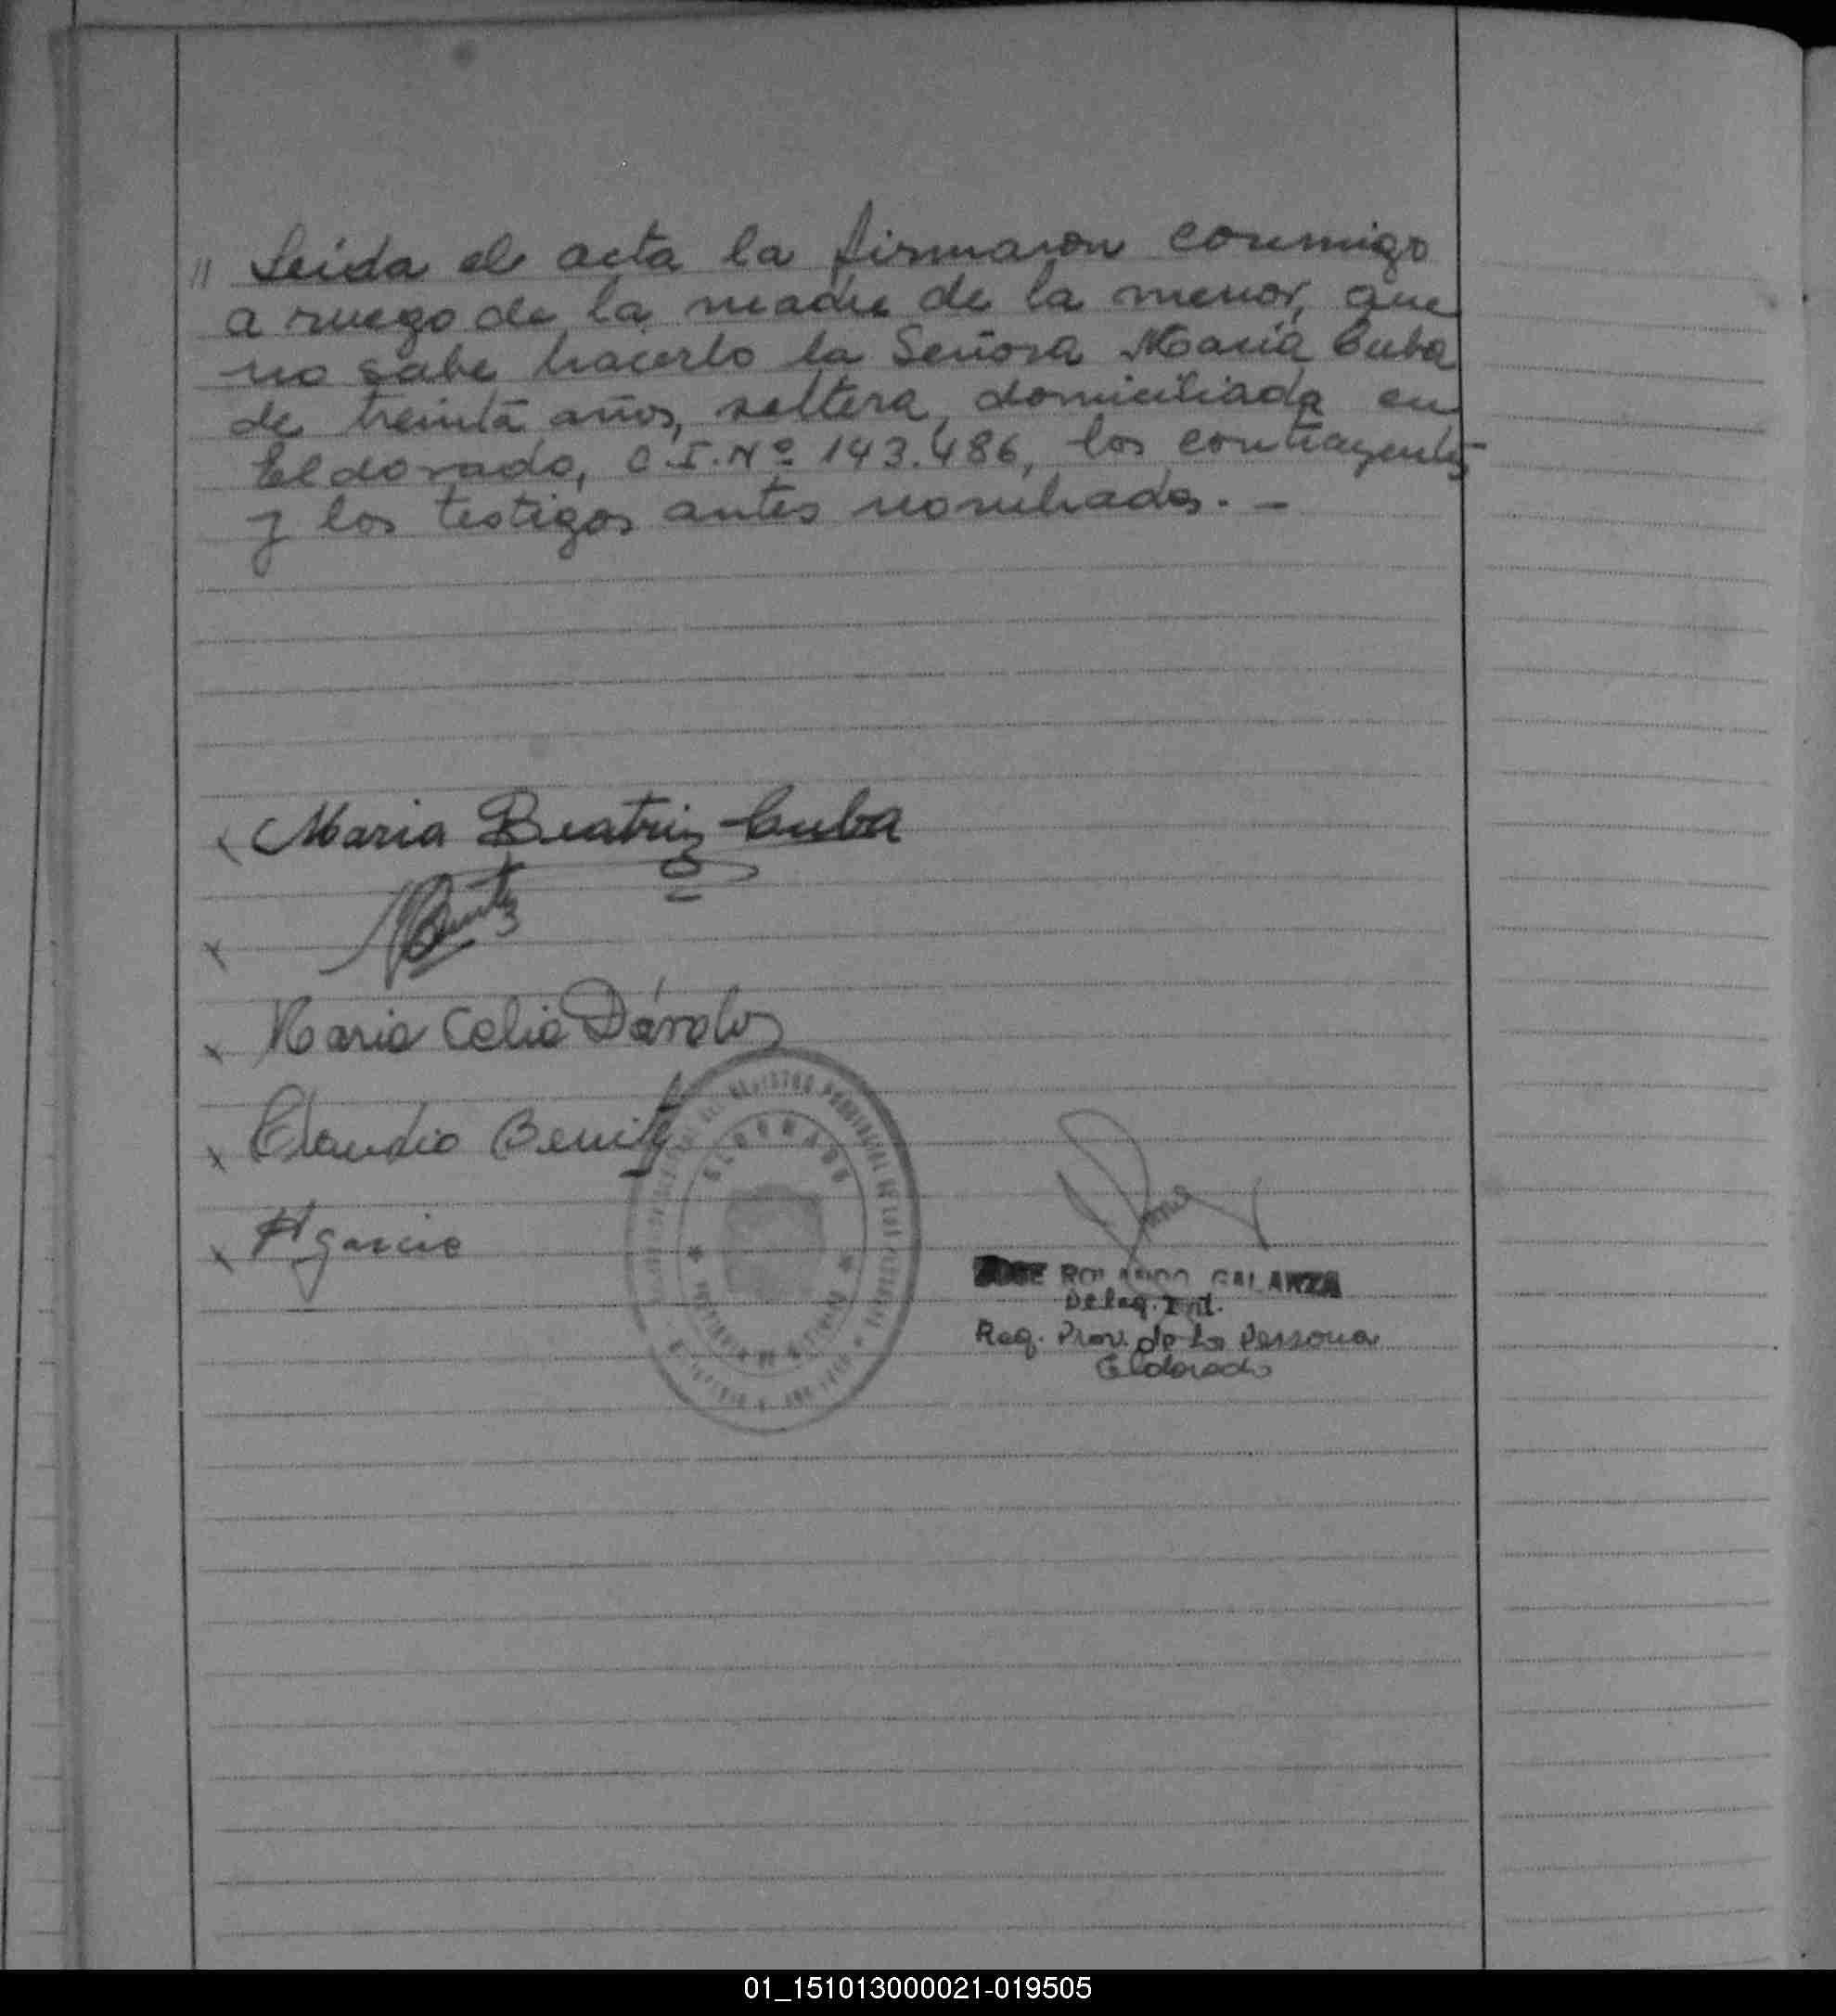 " Leida el acta la firmaron conmigo
a ruego de la madre de la menor, que
no sabe hacerlo la Señora María Cuba
de treinta años, soltera, domiciliada en
Eldorado, C.I.Nº 143.486, los contrayentes
y los testigos antes nombrados. -
x Maria Beatriz Cuba
x Benitez
x Maria Celia Dávalos
x Claudio Benitez
ELDORADO
x H garcia
JOSE ROLANDO GALARZA
Deleg. Int.
Reg. Prov. de las Personas
Eldorado
01_151013000021-019505